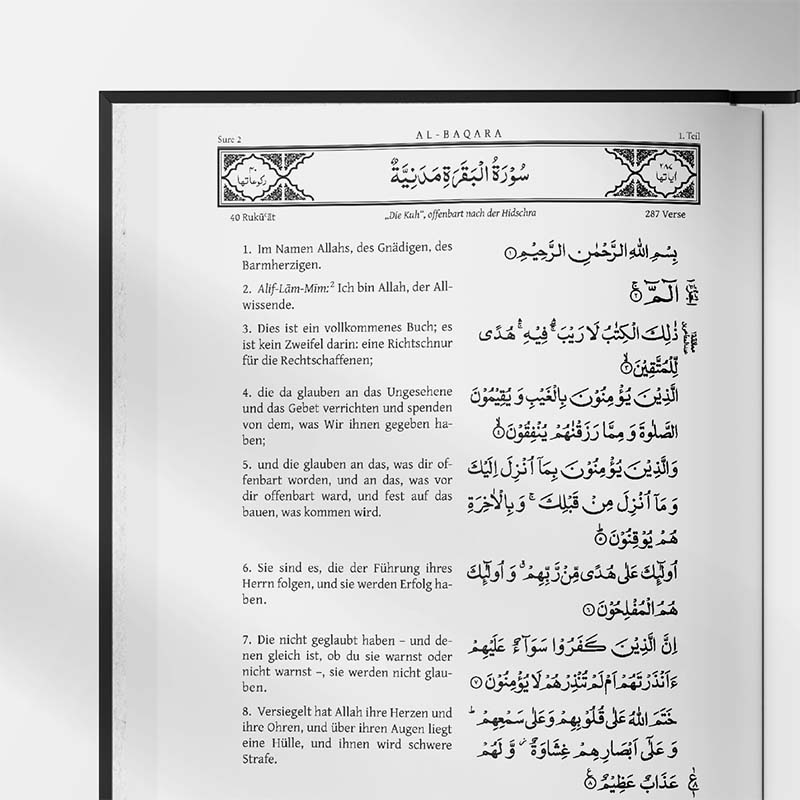 Sure 2
AL-BAQARA
1. Teil
٤٠
رکوعاتها
سُوْرَةُ الْبَقَرَةِ مَدَنِيَّةٌ
٢٨٧
اٰیاتها
40 Rukūʿāt
„Die Kuh“, offenbart nach der Hidschra
287 Verse
1. Im Namen Allahs, des Gnädigen, des
Barmherzigen.
2. Alif-Lām-Mīm:² Ich bin Allah, der All-
wissende.
3. Dies ist ein vollkommenes Buch; es
ist kein Zweifel darin: eine Richtschnur
für die Rechtschaffenen;
4. die da glauben an das Ungesehene
und das Gebet verrichten und spenden
von dem, was Wir ihnen gegeben ha-
ben;
5. und die glauben an das, was dir of-
fenbart worden, und an das, was vor
dir offenbart ward, und fest auf das
bauen, was kommen wird.
6. Sie sind es, die der Führung ihres
Herrn folgen, und sie werden Erfolg ha-
ben.
7. Die nicht geglaubt haben – und de-
nen gleich ist, ob du sie warnst oder
nicht warnst –, sie werden nicht glau-
ben.
8. Versiegelt hat Allah ihre Herzen und
ihre Ohren, und über ihren Augen liegt
eine Hülle, und ihnen wird schwere
Strafe.
بِسْمِ اللّٰهِ الرَّحْمٰنِ الرَّحِيْمِ ۝١
الٓمّٓ ۚ۝٢
ذٰلِكَ الْكِتٰبُ لَا رَيْبَ ۛۖ فِيْهِ ۛۚ هُدًى
لِّلْمُتَّقِيْنَ ۙ۝٣
الَّذِيْنَ يُؤْمِنُوْنَ بِالْغَيْبِ وَ يُقِيْمُوْنَ
الصَّلٰوةَ وَ مِمَّا رَزَقْنٰهُمْ يُنْفِقُوْنَ ۙ۝٤
وَالَّذِيْنَ يُؤْمِنُوْنَ بِمَاۤ اُنْزِلَ اِلَيْكَ
وَ مَاۤ اُنْزِلَ مِنْ قَبْلِكَ ۚ وَ بِالْاٰخِرَةِ
هُمْ يُوْقِنُوْنَ ؕ۝٥
اُولٰٓئِكَ عَلٰى هُدًى مِّنْ رَّبِّهِمْ ۙ وَ اُولٰٓئِكَ
هُمُ الْمُفْلِحُوْنَ ۝٦
اِنَّ الَّذِيْنَ كَفَرُوْا سَوَآءٌ عَلَيْهِمْ
ءَاَنْذَرْتَهُمْ اَمْ لَمْ تُنْذِرْهُمْ لَا يُؤْمِنُوْنَ ۝٧
خَتَمَ اللّٰهُ عَلٰى قُلُوْبِهِمْ وَ عَلٰى سَمْعِهِمْ ؕ
وَ عَلٰۤى اَبْصَارِهِمْ غِشَاوَةٌ ۫ وَّ لَهُمْ
عَذَابٌ عَظِيْمٌ ۝٨